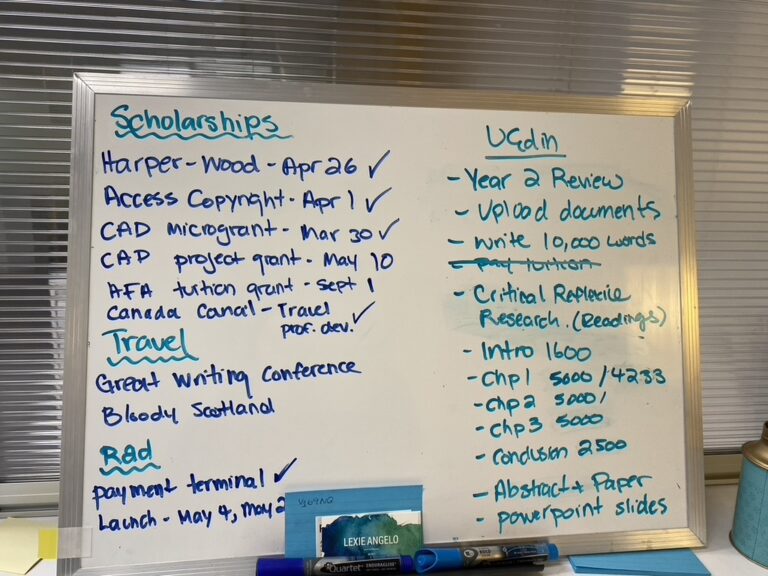 Scholarships
Harper-Wood - Apr 26 ✓
Access Copyright - Apr 1 ✓
CAD microgrant - Mar 30 ✓
CAD project grant - May 10
AFA tuition grant - Sept 1
Canada Concil - Travel
prof. dev. ✓
Travel
Great Writing Conference
Bloody Scotland
Rad
payment terminal ✓
Launch - May 4, May 2
UEdin
- Year 2 Review
- Upload documents
- Write 10,000 words
- pay tuition
- Critical Reflexive
Research. (Readings)
- Intro 1600
- Chp 1 5000 / 4233
- Chp 2 5000 /
- Chp 3 5000
- Conclusion 2500
- Abstract + Paper
- powerpoint slides
LEXIE ANGELO
Quartet ENDURAGLIDE